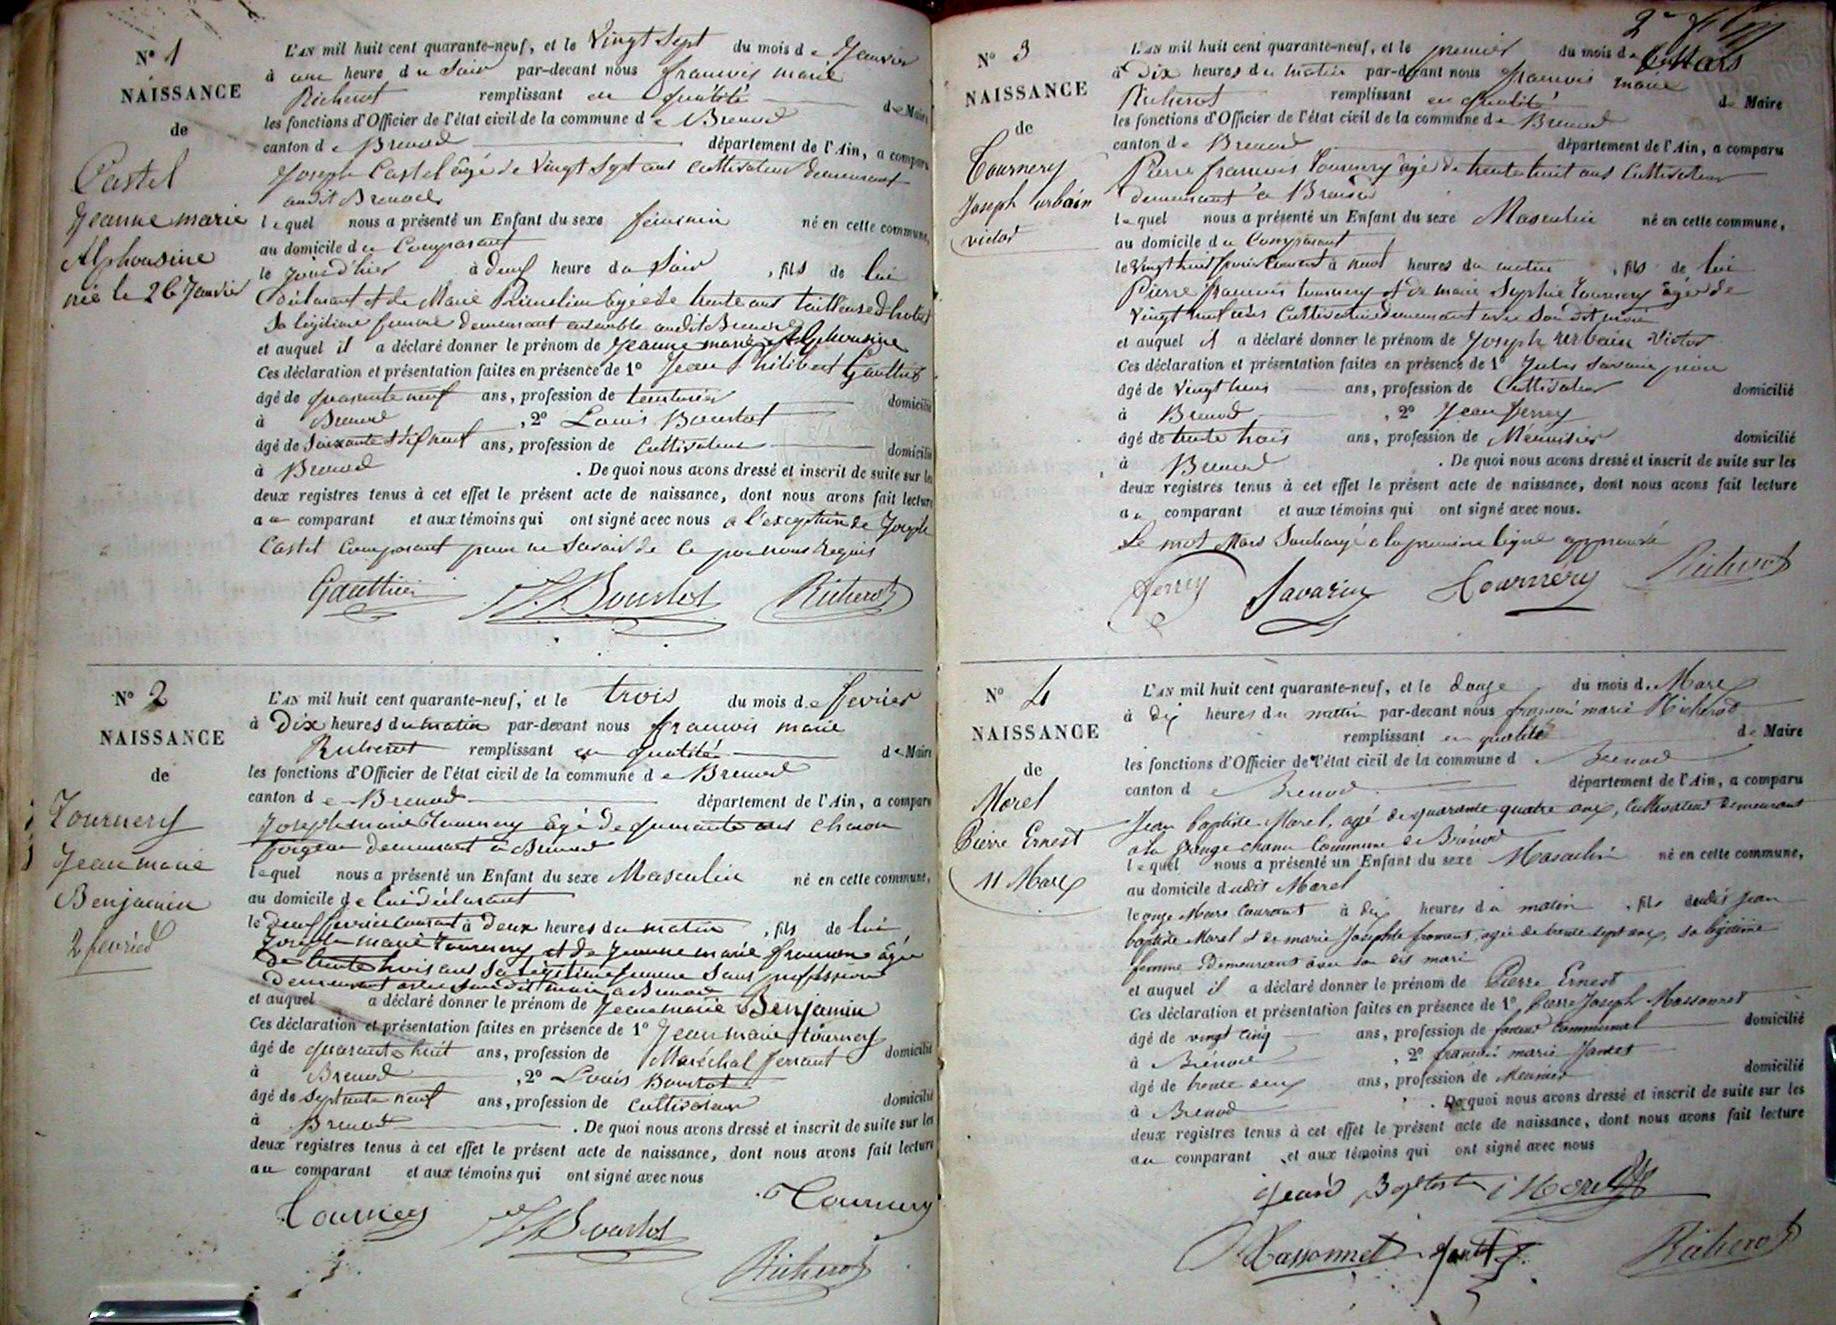 N° 1
NAISSANCE
de
Castel
Jeanne marie
Alphonsine
née le 26 Janvier
L'AN mil huit cent quarante-neuf, et le Vingt Sept du mois de Janvier
à une heure du Soir par-devant nous francois marie
Richerot remplissant en qualité de Maire
les fonctions d'Officier de l'état civil de la commune de Brenod
canton de Brenod département de l'Ain, a comparu
Joseph Castel âgé de Vingt Sept ans cultivateur demeurant
audit Brenod
lequel nous a présenté un Enfant du sexe féminin né en cette commune,
au domicile du Comparant
le jour d'hier à deux heure du Soir , fils de lui
Déclarant et de Marie âgée de trente ans tailleuse d'habit
Sa légitime femme demeurant ensemble audit Brenod
et auquel il a déclaré donner le prénom de Jeanne marie Alphonsine
Ces déclaration et présentation faites en présence de 1° Jean Philibert Gauthier
âgé de quarante neuf ans, profession de domicilié
à Brenod , 2° Louis Bourtot
âgé de Soixante dix neuf ans, profession de Cultivateur domicilié
à Brenod . De quoi nous avons dressé et inscrit de suite sur les
deux registres tenus à cet effet le présent acte de naissance, dont nous avons fait lecture
au comparant et aux témoins qui ont signé avec nous a l'exception de Joseph
Castel Comparant pour ne Savoir de ce par nous Requis
Gauthier Bourtot Richerot
N° 2
NAISSANCE
de
Tournery
Jean marie
Benjamin
2 février
L'AN mil huit cent quarante-neuf, et le trois du mois de fevrier
à Dix heures du matin par-devant nous francois marie
Richerot remplissant en qualité de Maire
les fonctions d'Officier de l'état civil de la commune de Brenod
canton de Brenod département de l'Ain, a comparu
Joseph marie Tournery âgé de quarante ans charon
forgeur demeurant à Brenod
lequel nous a présenté un Enfant du sexe Masculin né en cette commune,
au domicile de lui déclarant
le deux fevrier courant à deux heures du matin , fils de lui
Joseph marie Tournery et de Jeanne marie âgée
de trente trois ans Sa légitime femme Sans profession
demeurant avec Son dit mari a Brenod
et auquel a déclaré donner le prénom de Jean marie Benjamin
Ces déclaration et présentation faites en présence de 1° Jean marie tournery
âgé de quarante huit ans, profession de Maréchal ferrant domicilié
à Brenod , 2° Louis Bourtot
âgé de septante neuf ans, profession de Cultivateur domicilié
à Brenod . De quoi nous avons dressé et inscrit de suite sur les
deux registres tenus à cet effet le présent acte de naissance, dont nous avons fait lecture
au comparant et aux témoins qui ont signé avec nous
Tournery Bourtot Tournery
Richerot
N° 3
NAISSANCE
de
Tournery
Joseph urbain
victor
L'AN mil huit cent quarante-neuf, et le premier du mois de Mars
à Dix heures du matin par-devant nous francois marie
Richerot remplissant en qualité de Maire
les fonctions d'Officier de l'état civil de la commune de Brenod
canton de Brenod département de l'Ain, a comparu
Pierre francois Tournery âgé de trente huit ans Cultivateur
demeurant a Brenod
lequel nous a présenté un Enfant du sexe Masculin né en cette commune,
au domicile du Comparant
le Vingt huit fevrier à neuf heures du matin , fils de lui
Pierre francois tournery et de marie Sophie Tournery âgée de
Vingt neuf ans Cultivatrice demeurant avec Son dit mari
et auquel il a déclaré donner le prénom de Joseph Urbain Victor
Ces déclaration et présentation faites en présence de 1° Jules Savarin
âgé de Vingt ans, profession de Cultivateur domicilié
à Brenod , 2° Jean ferrey
âgé de trente trois ans, profession de Menuisier domicilié
à Brenod . De quoi nous avons dressé et inscrit de suite sur les
deux registres tenus à cet effet le présent acte de naissance, dont nous avons fait lecture
au comparant et aux témoins qui ont signé avec nous.
Le mot Mars Surchargé a la premiere ligne approuvé
ferrey Savarin Tournery Richerot
N° 4
NAISSANCE
de
Morel
Pierre Ernest
11 Mars
L'AN mil huit cent quarante-neuf, et le douze du mois de Mars
à dix heures du matin par-devant nous francois marie Richerot
remplissant en qualité de Maire
les fonctions d'Officier de l'état civil de la commune d e Brenod
canton d e Brenod département de l'Ain, a comparu
Jean baptiste Morel, agé de quarante quatre ans, Cultivateur demeurant
a la Grange Commune de Brénod
lequel nous a présenté un Enfant du sexe Masculin né en cette commune,
au domicile dudit Morel
le onze Mars Courant à dix heures du matin , fils dudit Jean
baptiste Morel et de marie Josephte froment, agée de trente sept ans, sa légitime
femme Demeurant avec son dit mari
et auquel il a déclaré donner le prénom de Pierre Ernest
Ces déclaration et présentation faites en présence de 1° Pierre Joseph Massonnet
âgé de vingt cinq ans, profession de communal domicilié
à Brénod , 2° francois marie Jantet
âgé de trente deux ans, profession de Meunier domicilié
à Brénod . De quoi nous avons dressé et inscrit de suite sur les
deux registres tenus à cet effet le présent acte de naissance, dont nous avons fait lecture
au comparant et aux témoins qui ont signé avec nous
Jean Baptiste Morel
Massonnet Jantet Richerot